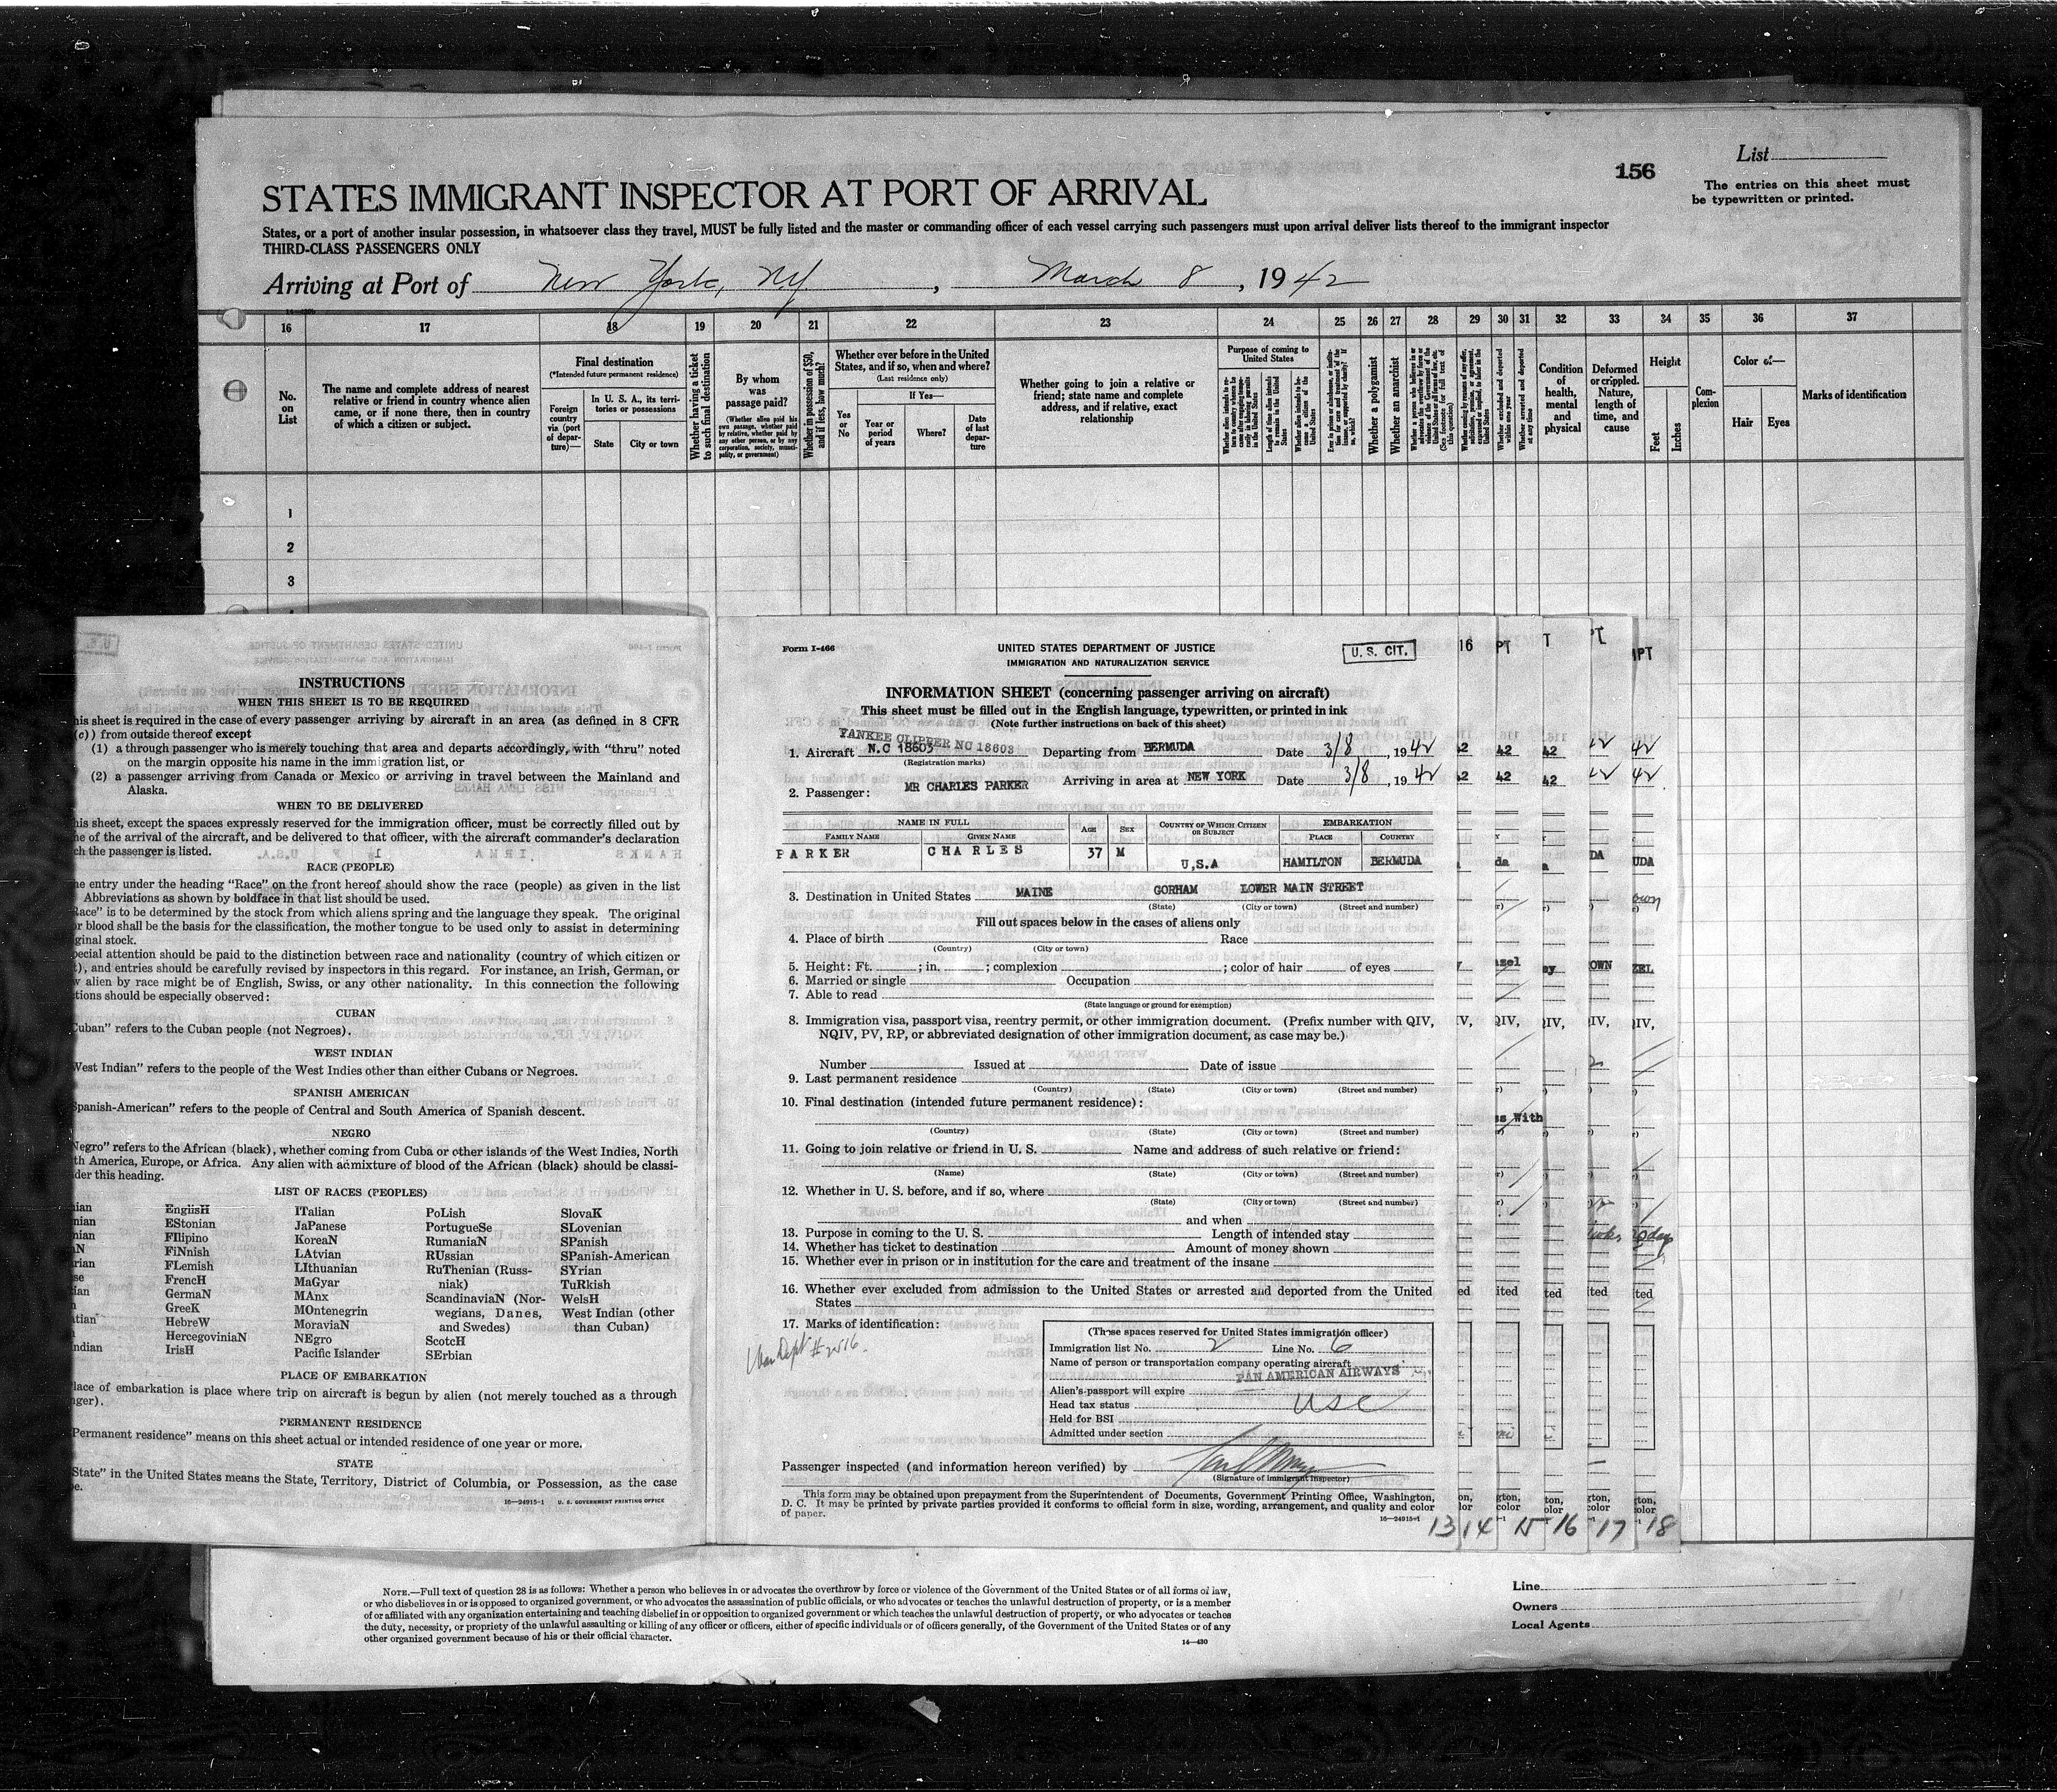 156
List
The entries on this sheet must
be typewritten or printed.
STATES IMMIGRANT INSPECTOR AT PORT OF ARRIVAL
States, or a port of another insular possession, in whatsoever class they travel, MUST be fully listed and the master or commanding officer of each vessel carrying such passengers must upon arrival deliver lists thereof to the immigrant inspector
THIRD-CLASS PASSENGERS ONLY
Arriving at Port of New York, NY, March 8, 1942
16 17 18 19 20 21 22 23 24 25 26 27 28 29 30 31 32 33 34 35 36 37
No.
on
List
The name and complete address of nearest
relative or friend in country whence alien
came, or if none there, then in country
of which a citizen or subject.
Final destination
(*Intended future permanent residence)
Foreign
country
via (port
of depar-
ture)—
In U. S. A., its terri-
tories or possessions
State City or town
Whether having a ticket
to such final destination
By whom
was
passage paid?
(Whether alien paid his
own passage, whether paid
by relative, whether paid by
any other person, or by any
corporation, society, munici-
pality, or government)
Whether in possession of $50,
and if less, how much?
Whether ever before in the United
States, and if so, when and where?
(Last residence only)
If Yes—
Yes
or
No
Year or
period
of years
Where?
Date
of last
depar-
ture
Whether going to join a relative or
friend; state name and complete
address, and if relative, exact
relationship
Purpose of coming to
United States
Length of time alien intends
to remain in the United
States
Whether alien intends to be-
come a citizen of the
United States
Whether a polygamist
Whether an anarchist
Whether arrested and deported
at any time
Condition
of
health,
mental
and
physical
Deformed
or crippled.
Nature,
length of
time, and
cause
Height
Feet Inches
Com-
plexion
Color of—
Hair Eyes
Marks of identification
1
2
3
INSTRUCTIONS
WHEN THIS SHEET IS TO BE REQUIRED
his sheet is required in the case of every passenger arriving by aircraft in an area (as defined in 8 CFR
(c)) from outside thereof except
(1) a through passenger who is merely touching that area and departs accordingly, with "thru" noted
on the margin opposite his name in the immigration list, or
(2) a passenger arriving from Canada or Mexico or arriving in travel between the Mainland and
Alaska.
WHEN TO BE DELIVERED
his sheet, except the spaces expressly reserved for the immigration officer, must be correctly filled out by
e of the arrival of the aircraft, and be delivered to that officer, with the aircraft commander's declaration
ch the passenger is listed.
RACE (PEOPLE)
he entry under the heading "Race" on the front hereof should show the race (people) as given in the list
Abbreviations as shown by boldface in that list should be used.
Race" is to be determined by the stock from which aliens spring and the language they speak. The original
r blood shall be the basis for the classification, the mother tongue to be used only to assist in determining
ginal stock.
pecial attention should be paid to the distinction between race and nationality (country of which citizen or
t), and entries should be carefully revised by inspectors in this regard. For instance, an Irish, German, or
w alien by race might be of English, Swiss, or any other nationality. In this connection the following
tions should be especially observed:
CUBAN
Cuban" refers to the Cuban people (not Negroes).
WEST INDIAN
West Indian" refers to the people of the West Indies other than either Cubans or Negroes.
SPANISH AMERICAN
Spanish-American" refers to the people of Central and South America of Spanish descent.
NEGRO
Negro" refers to the African (black), whether coming from Cuba or other islands of the West Indies, North
th America, Europe, or Africa. Any alien with admixture of blood of the African (black) should be classi-
der this heading.
LIST OF RACES (PEOPLES)
EnglisH ITalian PoLish SlovaK
EStonian JaPanese PortugueSe SLovenian
FIlipino KoreaN RumaniaN SPanish
FiNnish LAtvian RUssian SPanish-American
FLemish LIthuanian RuThenian (Russ- SYrian
FrencH MaGyar niak) TuRkish
GermaN MAnx ScandinaviaN (Nor- WelsH
GreeK MOntenegrin wegians, Danes, West Indian (other
HebreW MoraviaN and Swedes) than Cuban)
HercegoviniaN NEgro ScotcH
IrisH Pacific Islander SErbian
PLACE OF EMBARKATION
lace of embarkation is place where trip on aircraft is begun by alien (not merely touched as a through
nger).
PERMANENT RESIDENCE
Permanent residence" means on this sheet actual or intended residence of one year or more.
STATE
State" in the United States means the State, Territory, District of Columbia, or Possession, as the case
e.
16—24915-1 U. S. GOVERNMENT PRINTING OFFICE
Form I-466
UNITED STATES DEPARTMENT OF JUSTICE
IMMIGRATION AND NATURALIZATION SERVICE
U. S. CIT.
INFORMATION SHEET (concerning passenger arriving on aircraft)
This sheet must be filled out in the English language, typewritten, or printed in ink
(Note further instructions on back of this sheet)
YANKEE CLIPPER NC 18603
1. Aircraft N.C 18603 Departing from BERMUDA Date 3/8, 1942
(Registration marks)
Arriving in area at NEW YORK Date 3/8, 1942
2. Passenger: MR CHARLES PARKER
NAME IN FULL AGE SEX COUNTRY OF WHICH CITIZEN OR SUBJECT EMBARKATION
FAMILY NAME GIVEN NAME PLACE COUNTRY
PARKER CHARLES 37 M U.S.A HAMILTON BERMUDA
3. Destination in United States MAINE GORHAM LOWER MAIN STREET
(State) (City or town) (Street and number)
Fill out spaces below in the cases of aliens only
4. Place of birth Race
(Country) (City or town)
5. Height: Ft. ; in. ; complexion ; color of hair of eyes
6. Married or single Occupation
7. Able to read
(State language or ground for exemption)
8. Immigration visa, passport visa, reentry permit, or other immigration document. (Prefix number with QIV,
NQIV, PV, RP, or abbreviated designation of other immigration document, as case may be.)
Number Issued at Date of issue
9. Last permanent residence
(Country) (State) (City or town) (Street and number)
10. Final destination (intended future permanent residence):
(Country) (State) (City or town) (Street and number)
11. Going to join relative or friend in U. S. Name and address of such relative or friend:
(Name) (State) (City or town) (Street and number)
12. Whether in U. S. before, and if so, where
(State) (City or town) (Street and number)
and when
13. Purpose in coming to the U. S. Length of intended stay
14. Whether has ticket to destination Amount of money shown
15. Whether ever in prison or in institution for the care and treatment of the insane
16. Whether ever excluded from admission to the United States or arrested and deported from the United
States
17. Marks of identification:
(These spaces reserved for United States immigration officer)
Immigration list No. 2 Line No. 6
Name of person or transportation company operating aircraft
PAN AMERICAN AIRWAYS
Alien's passport will expire
Head tax status USC
Held for BSI
Admitted under section
Passenger inspected (and information hereon verified) by
(Signature of immigrant inspector)
This form may be obtained upon prepayment from the Superintendent of Documents, Government Printing Office, Washington,
D. C. It may be printed by private parties provided it conforms to official form in size, wording, arrangement, and quality and color
of paper.
16—24915-1
13 14 15 16 17 18
NOTE.—Full text of question 28 is as follows: Whether a person who believes in or advocates the overthrow by force or violence of the Government of the United States or of all forms of law,
or who disbelieves in or is opposed to organized government, or who advocates the assassination of public officials, or who advocates or teaches the unlawful destruction of property, or is a member
of or affiliated with any organization entertaining and teaching disbelief in or opposition to organized government or which teaches the unlawful destruction of property, or who advocates or teaches
the duty, necessity, or propriety of the unlawful assaulting or killing of any officer or officers, either of specific individuals or of officers generally, of the Government of the United States or of any
other organized government because of his or their official character.
14—430
Line
Owners
Local Agents